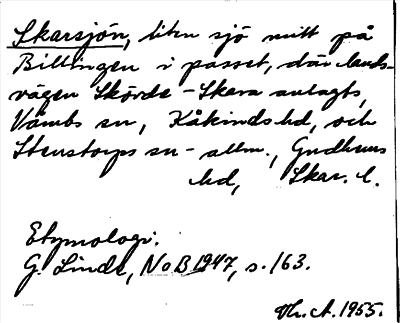 Skarsjön, liten sjö mitt på
Billingen i passet, där lands-
vägen Skövde - Skara anlagts,
Våmbs sn, Kåkinds hd, och
Stenstorps sn - allm., Gudhems
hd, Skar. l.
Etymologi.
G. Linde, NoB 1947, s. 163.
A. 1955.